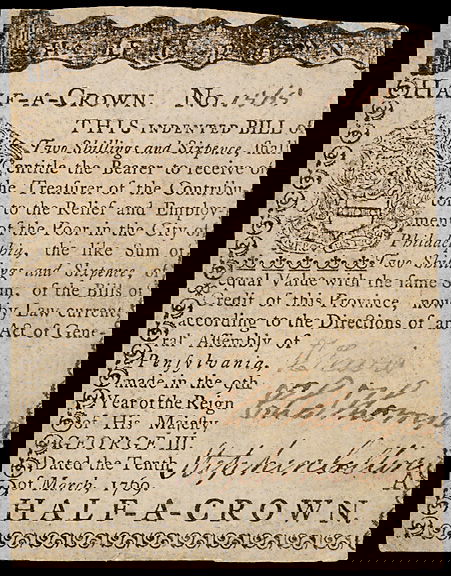 HALF-A-CROWN. No.
THIS INDENTED BILL of
Two Shillings and Sixpence, shall
entitle the Bearer to receive of
the Treasurer of the Contribu-
tors to the Relief and Employ-
ment of the Poor in the City of
Philadelphia, the like Sum of
Two Shillings and Sixpence, of
equal Value with the same
Sum, of the Bills of
Credit of this Province, now
by Law current,
according to the Directions of an
Act of Gene-
ral Assembly of
Pensylvania,
made in the 9th
Year of the Reign
of His Majesty
GEORGE III.
Dated the Tenth
of March, 1769.
HALF-A-CROWN.